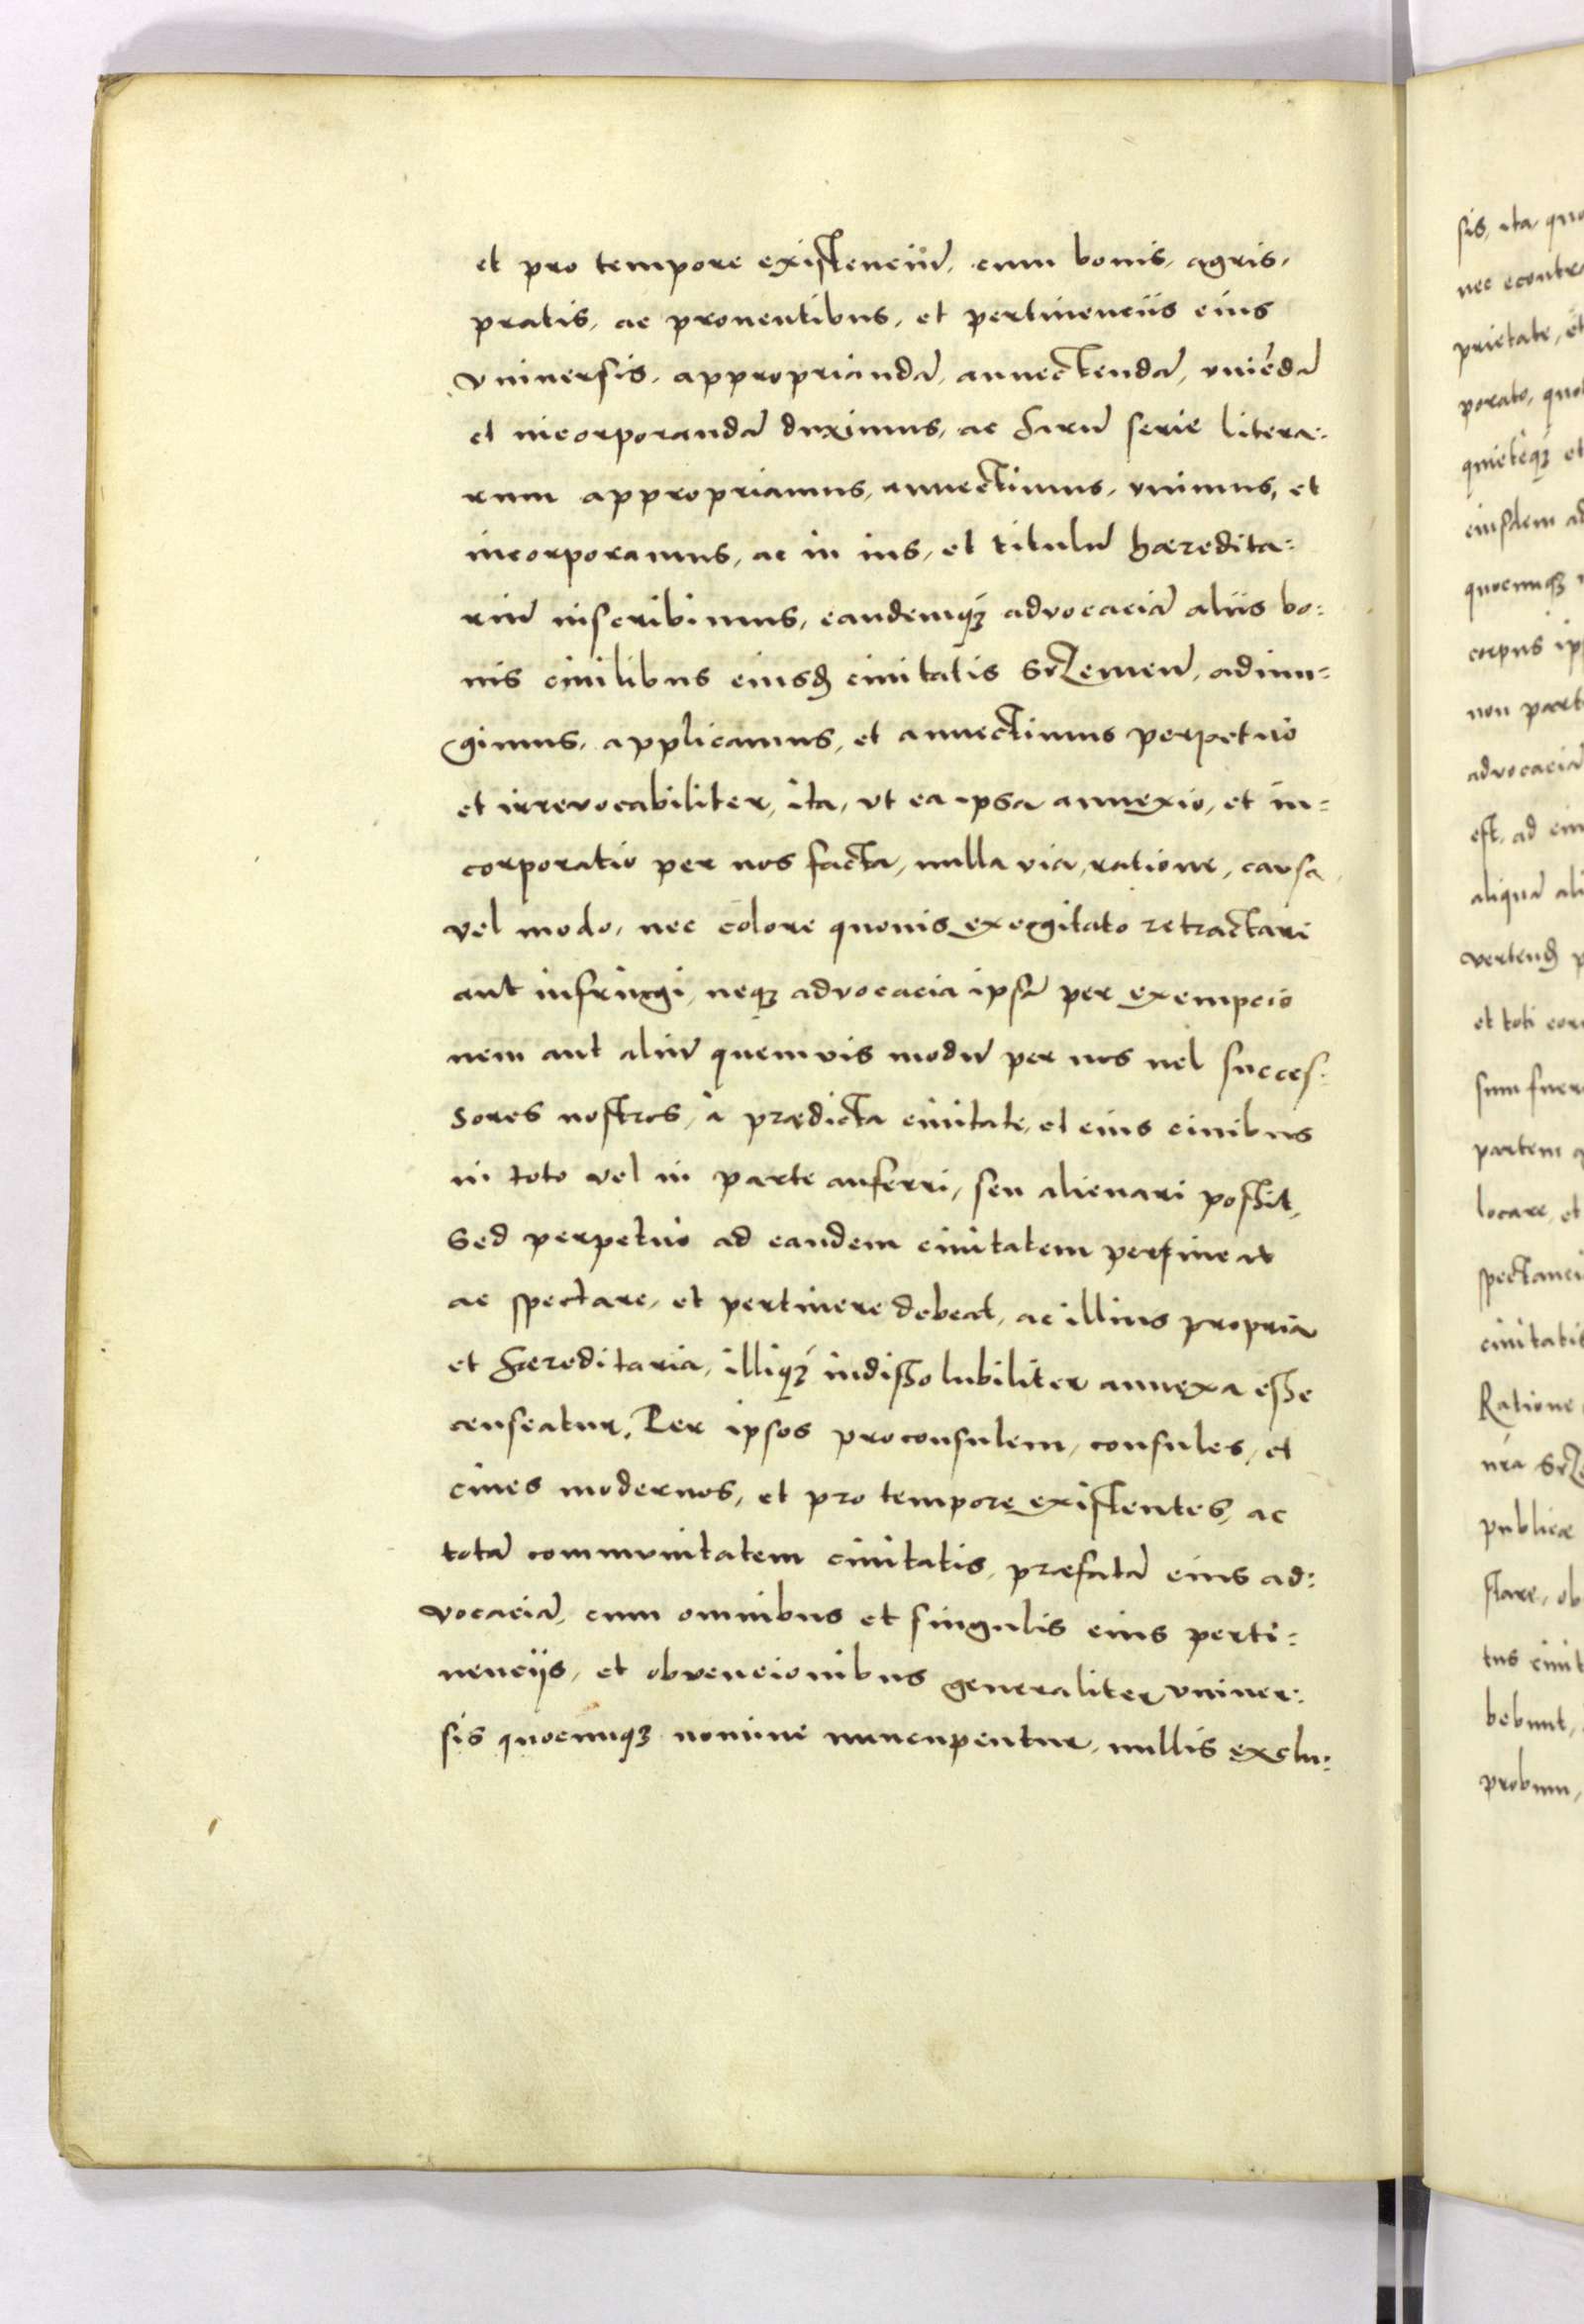 et pro tempore existenciũ, cum bonis, agris,
pratis, ac prouentibus, et pertinenciis eius
vniuersis, appropriandã, annectendã, vniẽdã
et incorporandã duximus, ac harũ serie litera:
rum appropriamus, annectimus, vnimus, et
incorporamus, ac in ius, et titulũ hæredita:
riũ inscribimus, eandemqꝫ advocaciã aliis bo:
nis ciuilibus eiusd̃ ciuitatis SrZemeñ, adiun:
gimus, applicamus, et annectimus perpetuò
et irrevocabiliter, ita, vt ea ipsa annexio, et in:
corporatio per nos facta, nulla via, ratione, causa,
vel modo, nec colore quouis exogitato retractari
aut infringi, neqꝫ advocacia ipsã per exempcio
nem aut aliũ quemvis modũ per nos uel succes:
sores nostros, à prædicta ciuitate, et eius ciuibus
in toto vel in parte auferri, seu alienari possit,
Sed perpetuò ad eandem ciuitatem pertineat
ac spectare, et pertinere debeat, ac illius propria
et hæreditaria, illiqꝫ indissolubiliter annexa esse
censeatur, Per ipsos proconsulem, consules, et
ciues modernos, et pro tempore existentes, ac
totã communitatem ciuitatis, præfatã eius ad:
vocaciã, cum omnibus et singulis eius perti:
nenciis, et obvencionibus generaliter vniuer:
sis quocunqꝫ nomine nuncupentur, nullis exclu:
sis, ita quo
nec econtr
prietate, et
porato, quo
quietèqꝫ et
eiusdem ad
quocunqꝫ
corpus ip
non part
advocaciã
est, ad
aliquã ali
vertend̃ p
et toti cor
sum fuer
partem
locare, et
spectanci
ciuitatis
Ratione
nrã SrZe
publicæ
stare, ob
tus ciuit
bebunt,
probum,